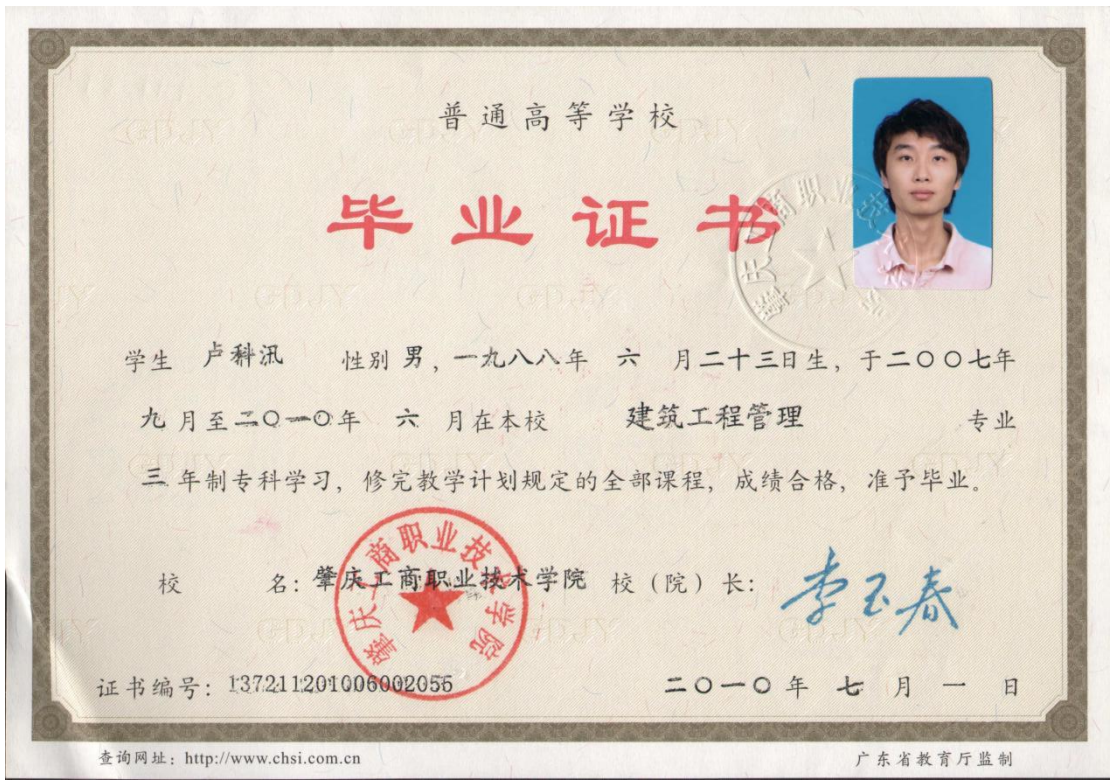 普通高等学校
毕业证书
学生 卢科汛 性别 男，一九八八年 六 月二十三日生，于二〇〇七年
九月至二〇一〇年 六 月在本校 建筑工程管理 专业
三年制专科学习，修完教学计划规定的全部课程，成绩合格，准予毕业。
校 名：肇庆工商职业技术学院 校（院）长：李玉春
肇庆工商职业技术学院
证书编号：137211201006002055 二〇一〇年 七 月 一 日
查询网址：http://www.chsi.com.cn 广东省教育厅监制